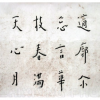 適廓尔
忘言華
枝春滿
天心月